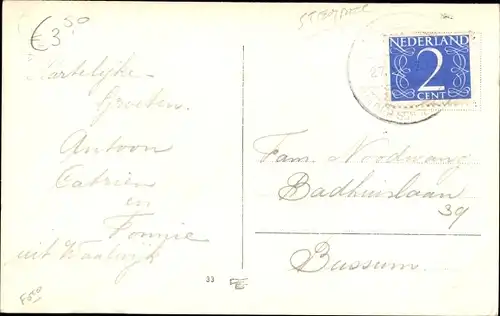 €3,50
Hartelijke
Groeten.
Antoon
Catrien
en
Fonnie
uit Waalwijk
Foto
33
STEMPEL
NEDERLAND
2
CENT
27.
Fam. Noodwang
Badhuislaan
39
Bussum.